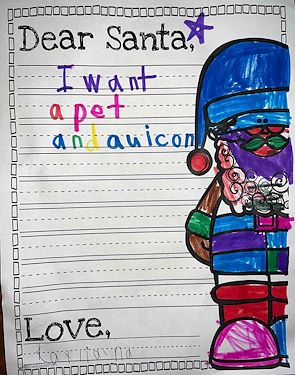 Dear Santa,
I want
a pet
and auicon
Love,